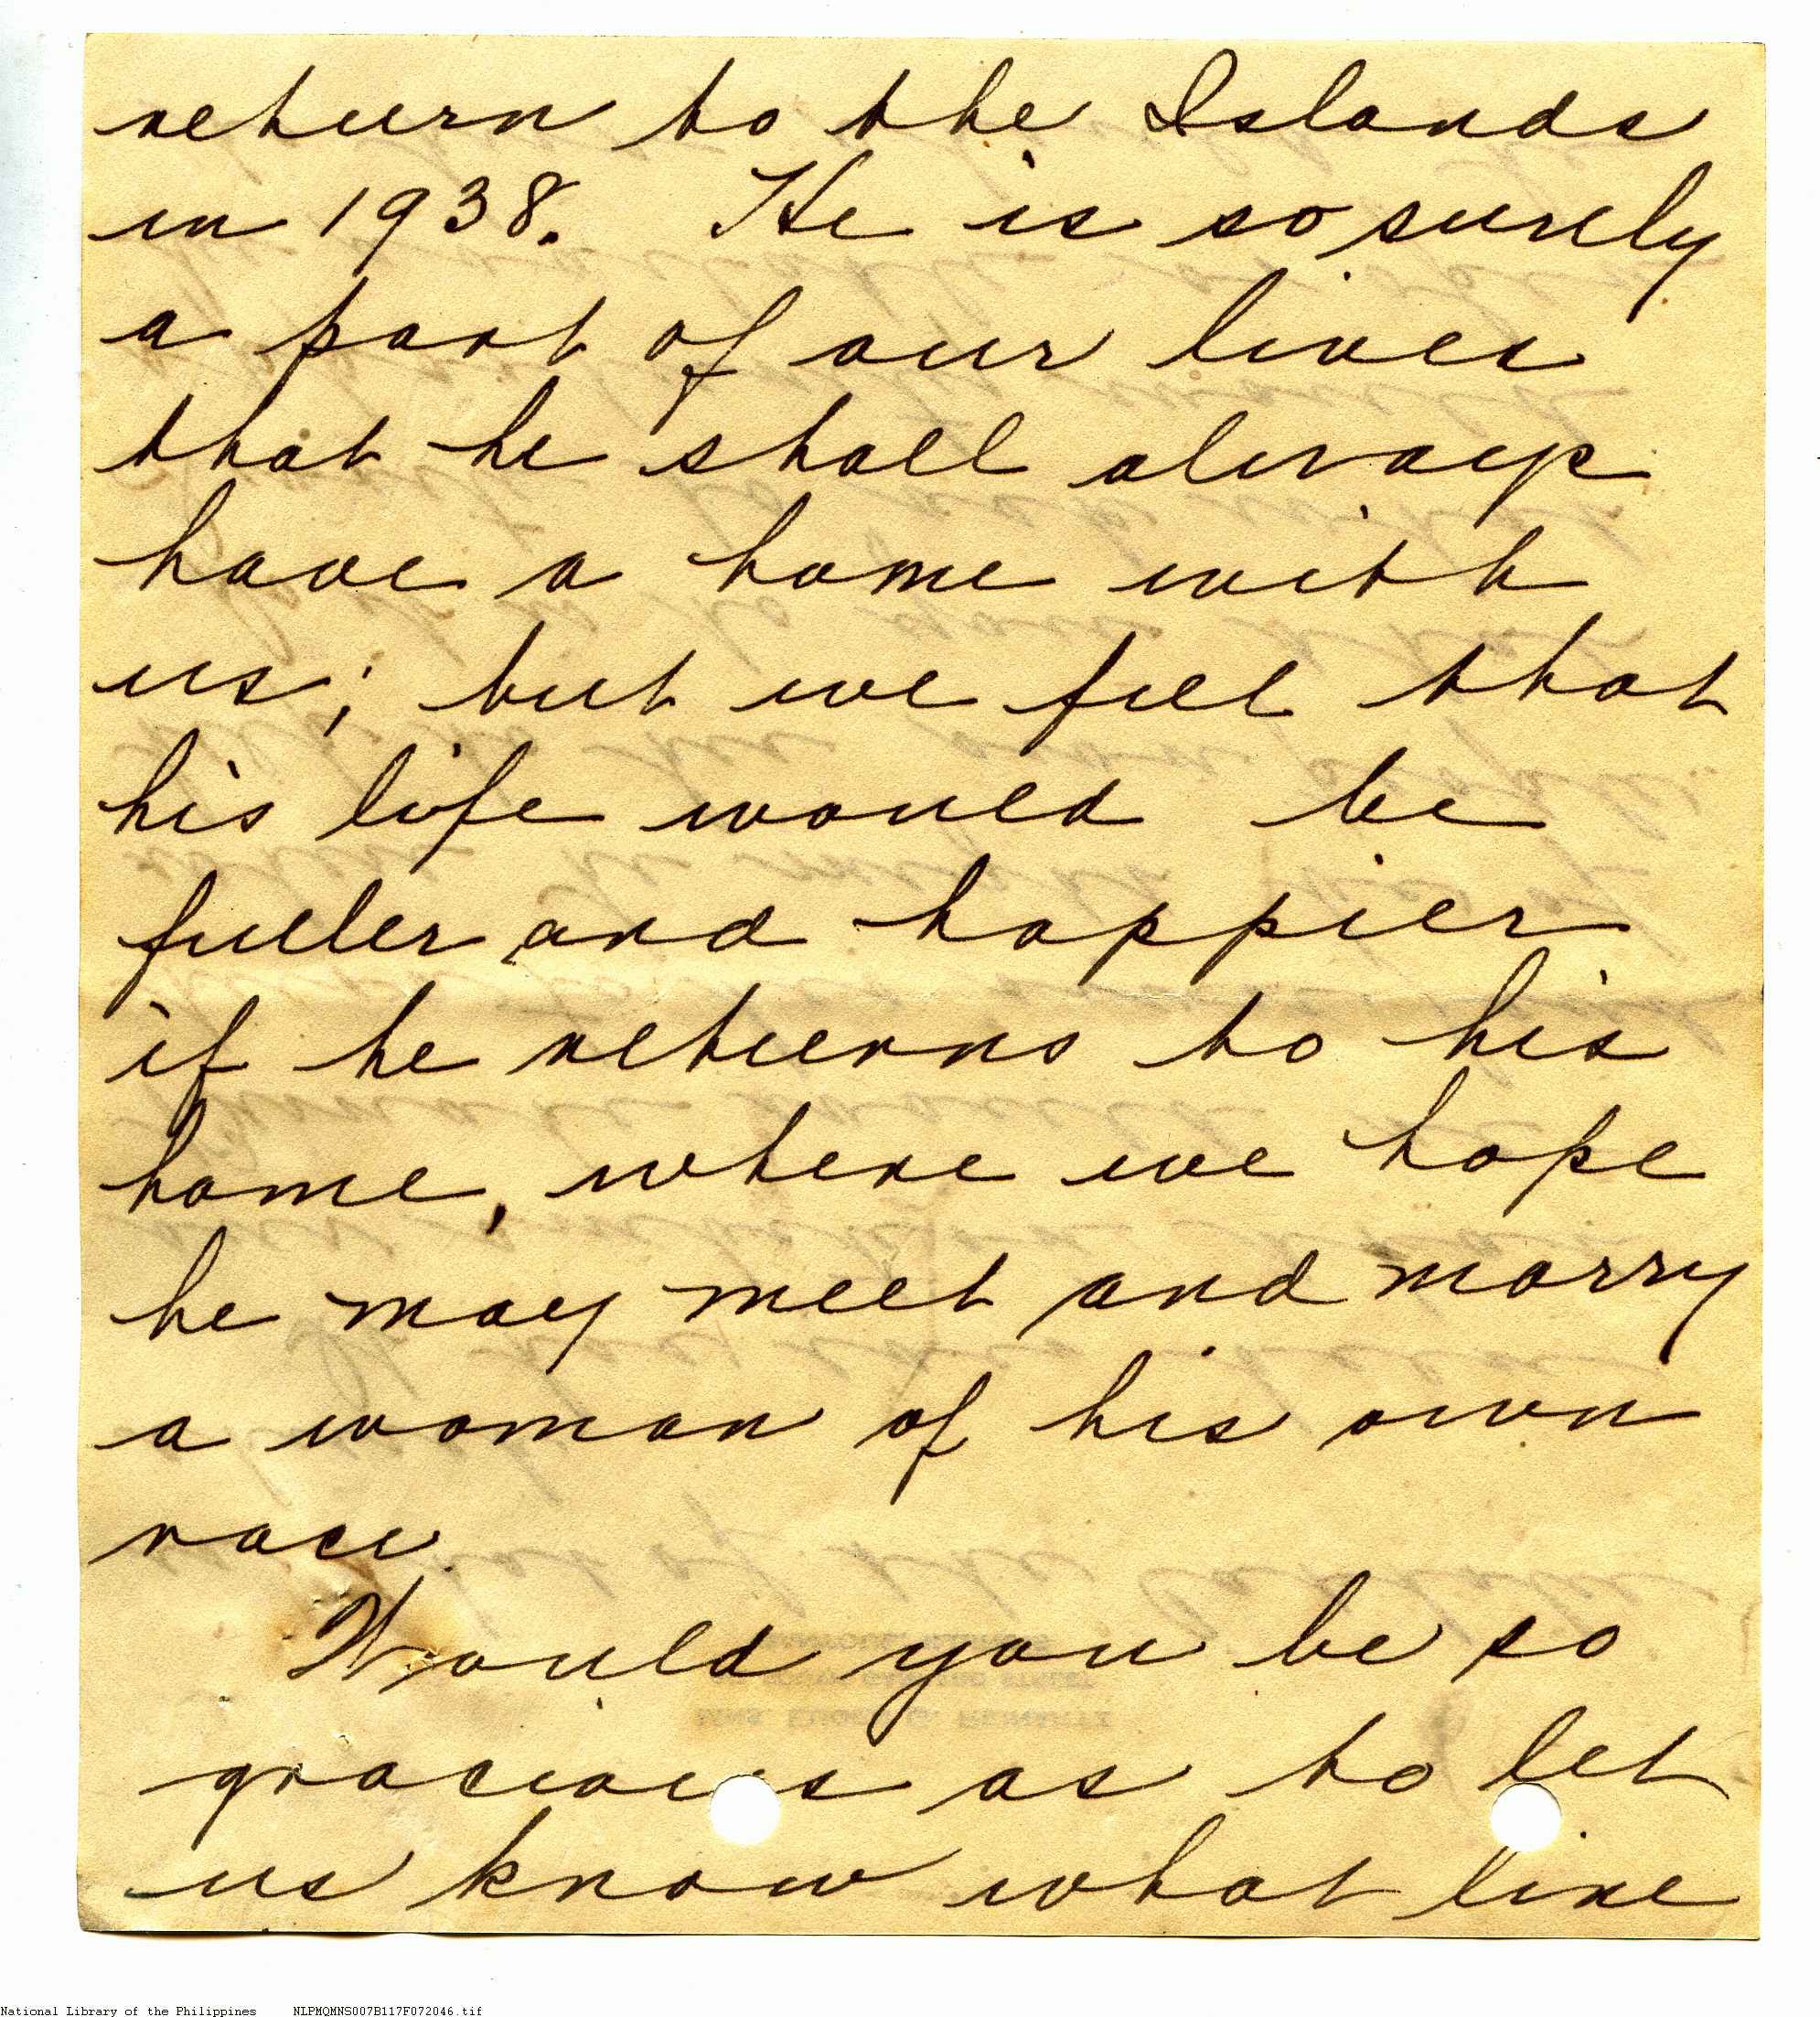 return to the Islands
in 1938. He is so surely
a part of our lives
that he shall always
have a home with
us; but we feel that
his life would be
fuller and happier
if he returns to his
home, where we hope
he may meet and marry
a woman of his own
race.
Would you be so
gracious as to let
us know what line
National Library of the Philippines NLPMQMNS007B117F072046.tif